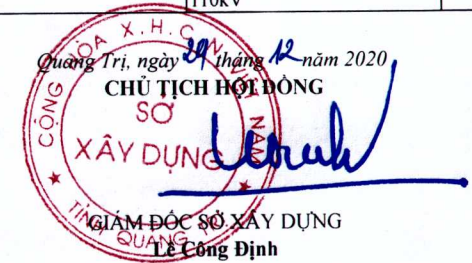 110kV
Quảng Trị, ngày 29 tháng 12 năm 2020
CHỦ TỊCH HỘI ĐỒNG
CỘNG HÒA X.H.C.N VIỆT NAM
SỞ
XÂY DỰNG
TỈNH QUẢNG TRỊ
GIÁM ĐỐC SỞ XÂY DỰNG
Lê Công Định